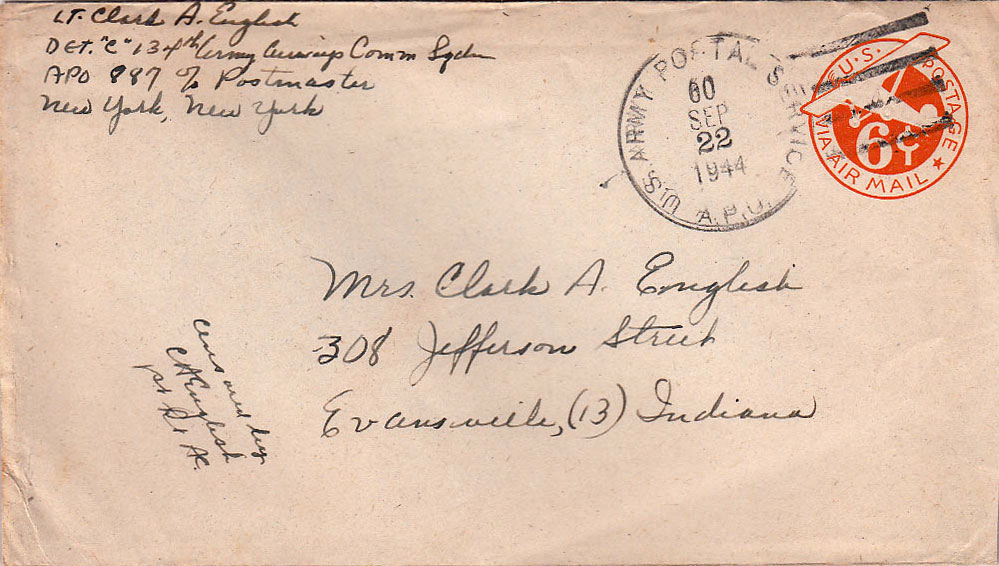 Lt. Clark A. English
DET. "C" 134th Army Airways Comm Sqdn
APO 887 c/o Postmaster
New York, New York
U.S. ARMY POSTAL SERVICE
60
SEP
22
1944
A.P.O.
U.S. POSTAGE
6¢
VIA AIR MAIL
Mrs. Clark A. English
308 Jefferson Street
Evansville, (13) Indiana
Censored by
CAEnglish
1st Lt AC.